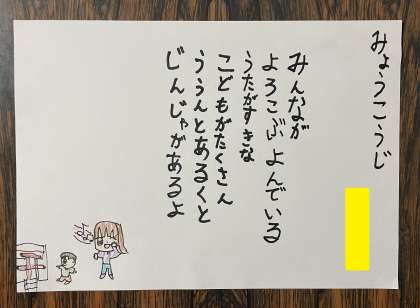 みょうこうじ
みんなが
よろこぶよんでいる
うたがすきな
こどもがたくさん
ううんとあるくと
じんじゃがあるよ